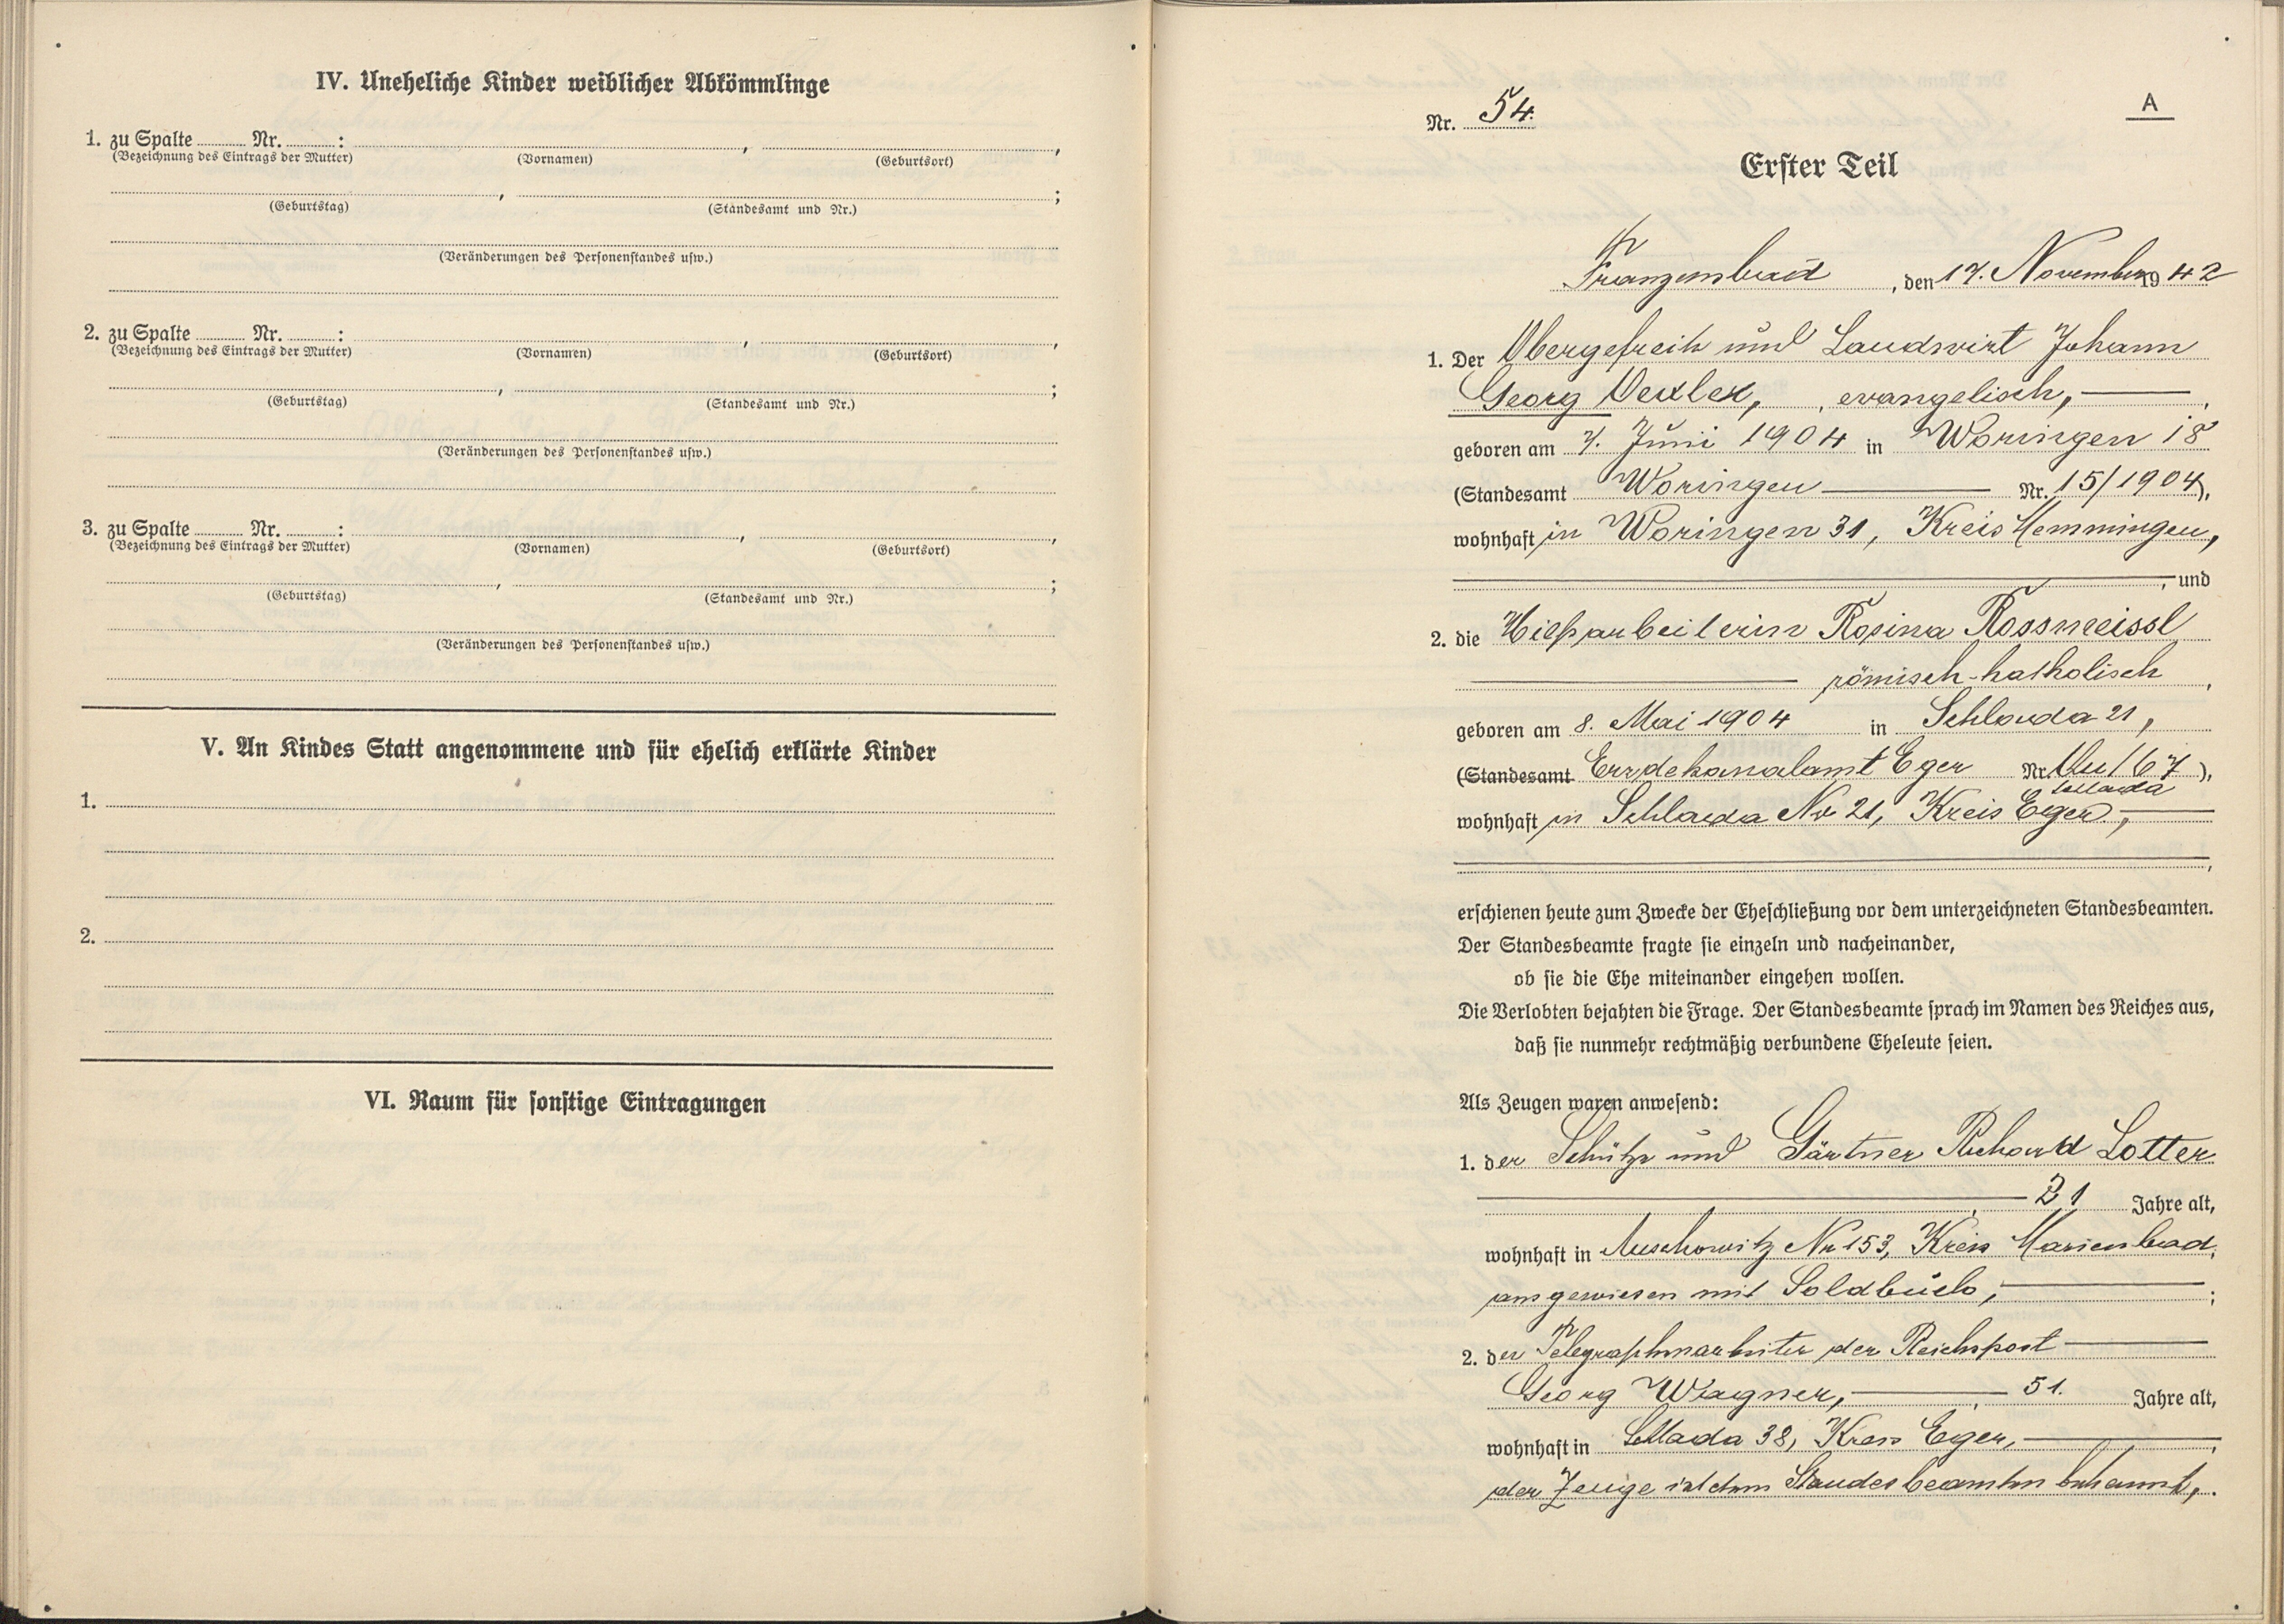 IV. Uneheliche Kinder weiblicher Abkömmlinge
1. zu Spalte Nr. : , ,
(Bezeichnung des Eintrags der Mutter) (Vornamen) (Geburtsort)
, ;
(Geburtstag) (Standesamt und Nr.)
(Veränderungen des Personenstandes usw.)
2. zu Spalte Nr. : , ,
(Bezeichnung des Eintrags der Mutter) (Vornamen) (Geburtsort)
, ;
(Geburtstag) (Standesamt und Nr.)
(Veränderungen des Personenstandes usw.)
3. zu Spalte Nr. : , ,
(Bezeichnung des Eintrags der Mutter) (Vornamen) (Geburtsort)
, ;
(Geburtstag) (Standesamt und Nr.)
(Veränderungen des Personenstandes usw.)
V. An Kindes Statt angenommene und für ehelich erklärte Kinder
1.
2.
VI. Raum für sonstige Eintragungen
A
Nr. 54.
Erster Teil
Franzensbad, den 17. November 1942
1. Der Obergefreite und Landwirt Johann
Georg, evangelisch,
geboren am 7. Juni 1904 in Woringen 18
(Standesamt Woringen Nr. 15/1904),
wohnhaft in Woringen 31, Kreis Memmingen,
, und
2. die Hilfsarbeiterin Rosina Rossmeissl
römisch-katholisch,
geboren am 8. Mai 1904 in Schlada 21,
(Standesamt Erzdekanalamt Eger Nr. /67),
Schlada
wohnhaft in Schlada Nr 21, Kreis Eger,
erschienen heute zum Zwecke der Eheschließung vor dem unterzeichneten Standesbeamten.
Der Standesbeamte fragte sie einzeln und nacheinander,
ob sie die Ehe miteinander eingehen wollen.
Die Verlobten bejahten die Frage. Der Standesbeamte sprach im Namen des Reiches aus,
daß sie nunmehr rechtmäßig verbundene Eheleute seien.
Als Zeugen waren anwesend:
1. der Schütze und Gärtner Richard Lotter
, 21 Jahre alt,
wohnhaft in Auschowitz Nr 153, Kreis Marienbad,
ausgewiesen mit Soldbuch, ;
2. der Telegraphenarbeiter der Reichspost
Georg Wagner, , 51. Jahre alt,
wohnhaft in Schlada 38, Kreis Eger,
der Zeuge ist dem Standesbeamten bekannt,.